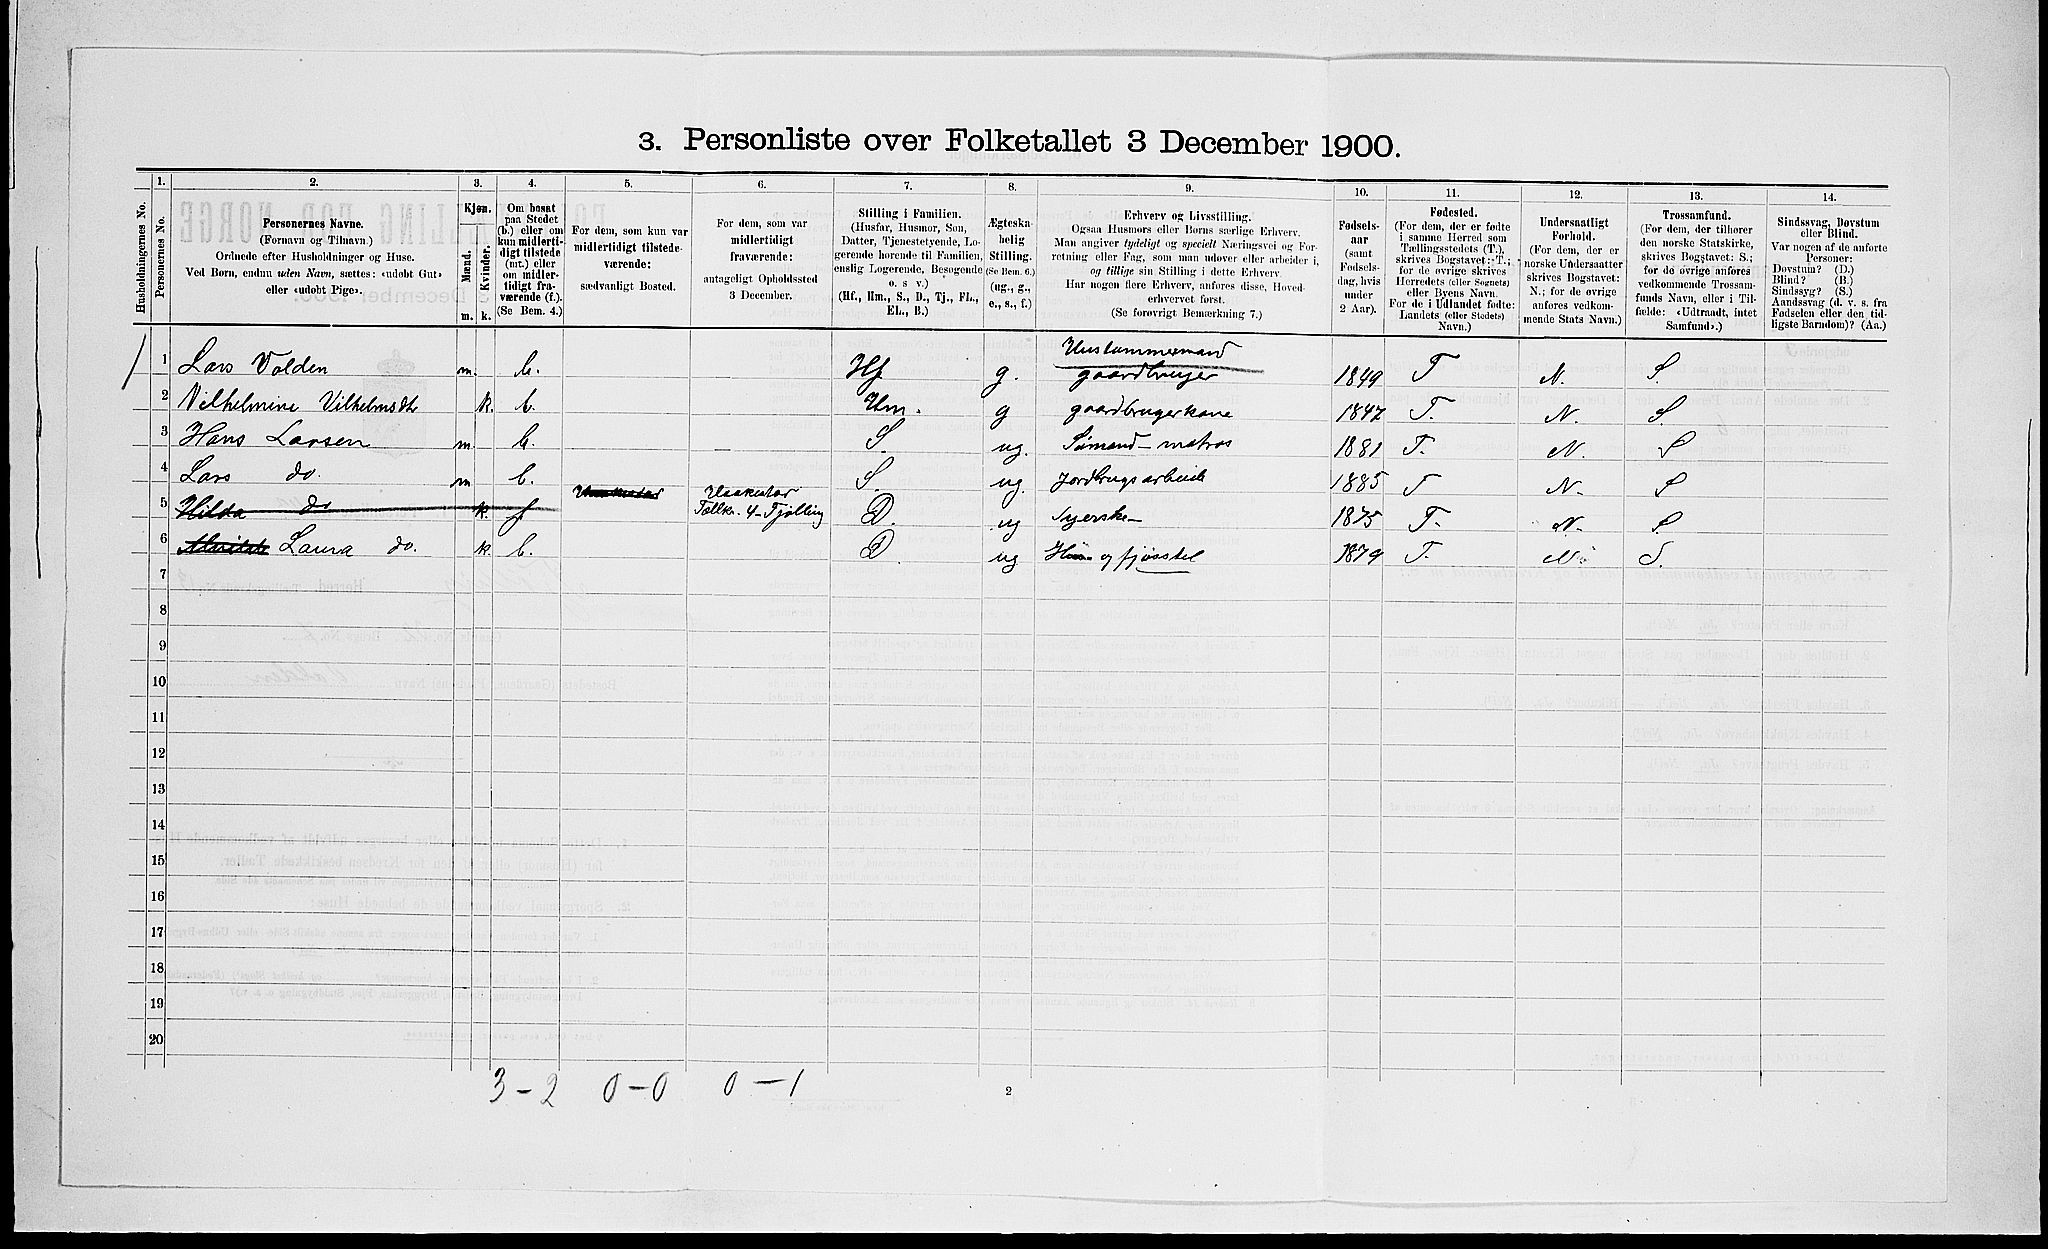 3. Personliste over Folketallet 3 December 1900.
1. 2. 3. 4. 5. 6. 7. 8. 9. 10. 11. 12. 13. 14.
Husholdningernes No.
Personernes No.
Personernes Navne.
(Fornavn og Tilnavn.)
Ordnede efter Husholdninger og Huse.
Ved Børn, endnu uden Navn, sættes: «udøbt Gut»
eller «udøbt Pige».
Kjøn.
Mænd.
Kvinder.
m. k.
Om bosat
paa Stedet
(b.) eller om
kun midlerti-
digt tilstede
(mt.) eller
om midler-
tidigt fra-
værende (f.)
(Se Bem. 4.)
For dem, som kun var
midlertidigt tilstede-
værende:
sædvanligt Bosted.
For dem, som var
midlertidigt
fraværende:
antageligt Opholdssted
3 December.
Stilling i Familien.
(Husfar, Husmor, Søn,
Datter, Tjenestetyende, Lo-
gerende hørende til Familien,
enslig Logerende, Besøgende
o. s. v.)
(Hf., Hm., S., D., Tj., FL.,
EL., B.)
Ægteska-
belig
Stilling.
(Se Bem. 6.)
(ug., g.,
e., s., f.)
Erhverv og Livsstilling.
Ogsaa Husmors eller Børns særlige Erhverv.
Man angiver tydeligt og specielt Næringsvei og For-
retning eller Fag, som man udøver eller arbeider i,
og tillige sin Stilling i dette Erhverv.
Har nogen flere Erhverv, anføres disse, Hoved-
erhvervet først.
(Se forøvrigt Bemærkning 7.)
Fødsels-
aar
(samt
Fødsels-
dag, hvis
under
2 Aar).
Fødested.
(For dem, der er fødte
i samme Herred som
Tællingsstedets (T.),
skrives Bogstavet: T.;
for de øvrige skrives
Herredets (eller Sognets)
eller Byens Navn.
For de i Udlandet fødte:
Landets (eller Stedets)
Navn.)
Undersaatligt
Forhold.
(For dem, der er
norske Undersaatter
skrives Bogstavet:
N.; for de øvrige
anføres vedkom-
mende Stats Navn.)
Trossamfund.
(For dem, der tilhører
den norske Statskirke,
skrives Bogstavet: S.;
for de øvrige anføres
vedkommende Trossam-
funds Navn, eller i Til-
fælde: «Udtraadt, intet
Samfund».)
Sindssvag, Døvstum
eller Blind.
Var nogen af de anførte
Personer:
Døvstum? (D.)
Blind? (B.)
Sindssyg? (S.)
Aandssvag (d. v. s. fra
Fødselen eller den tid-
ligste Barndom)? (Aa.)
1 Lars Volden m. b. Hf g. Hustømmermand gaardbruger 1849 T N. S.
2 Vilhelmine Vilhelmsdtr k. b. Hm. g gaardbrugerkone 1847 T. N. S.
3 Hans Larsen m. b. S. ug. Sømand - matros 1881 T. N. S
4 Lars do. m b. S. ug. Jordbrugsarbeide 1885 T N. S
5 Hilda do k. f Tællkr. 4 - Tjølling D. ug Syerske 1875 T. N. S
6 Laura do. k b. D ug Hus og fjøsstel 1879 T. N S.
7
8
9
10
11
12
13
14
15
16
17
18
19
20
3 - 2 0 - 0 0 - 1
2